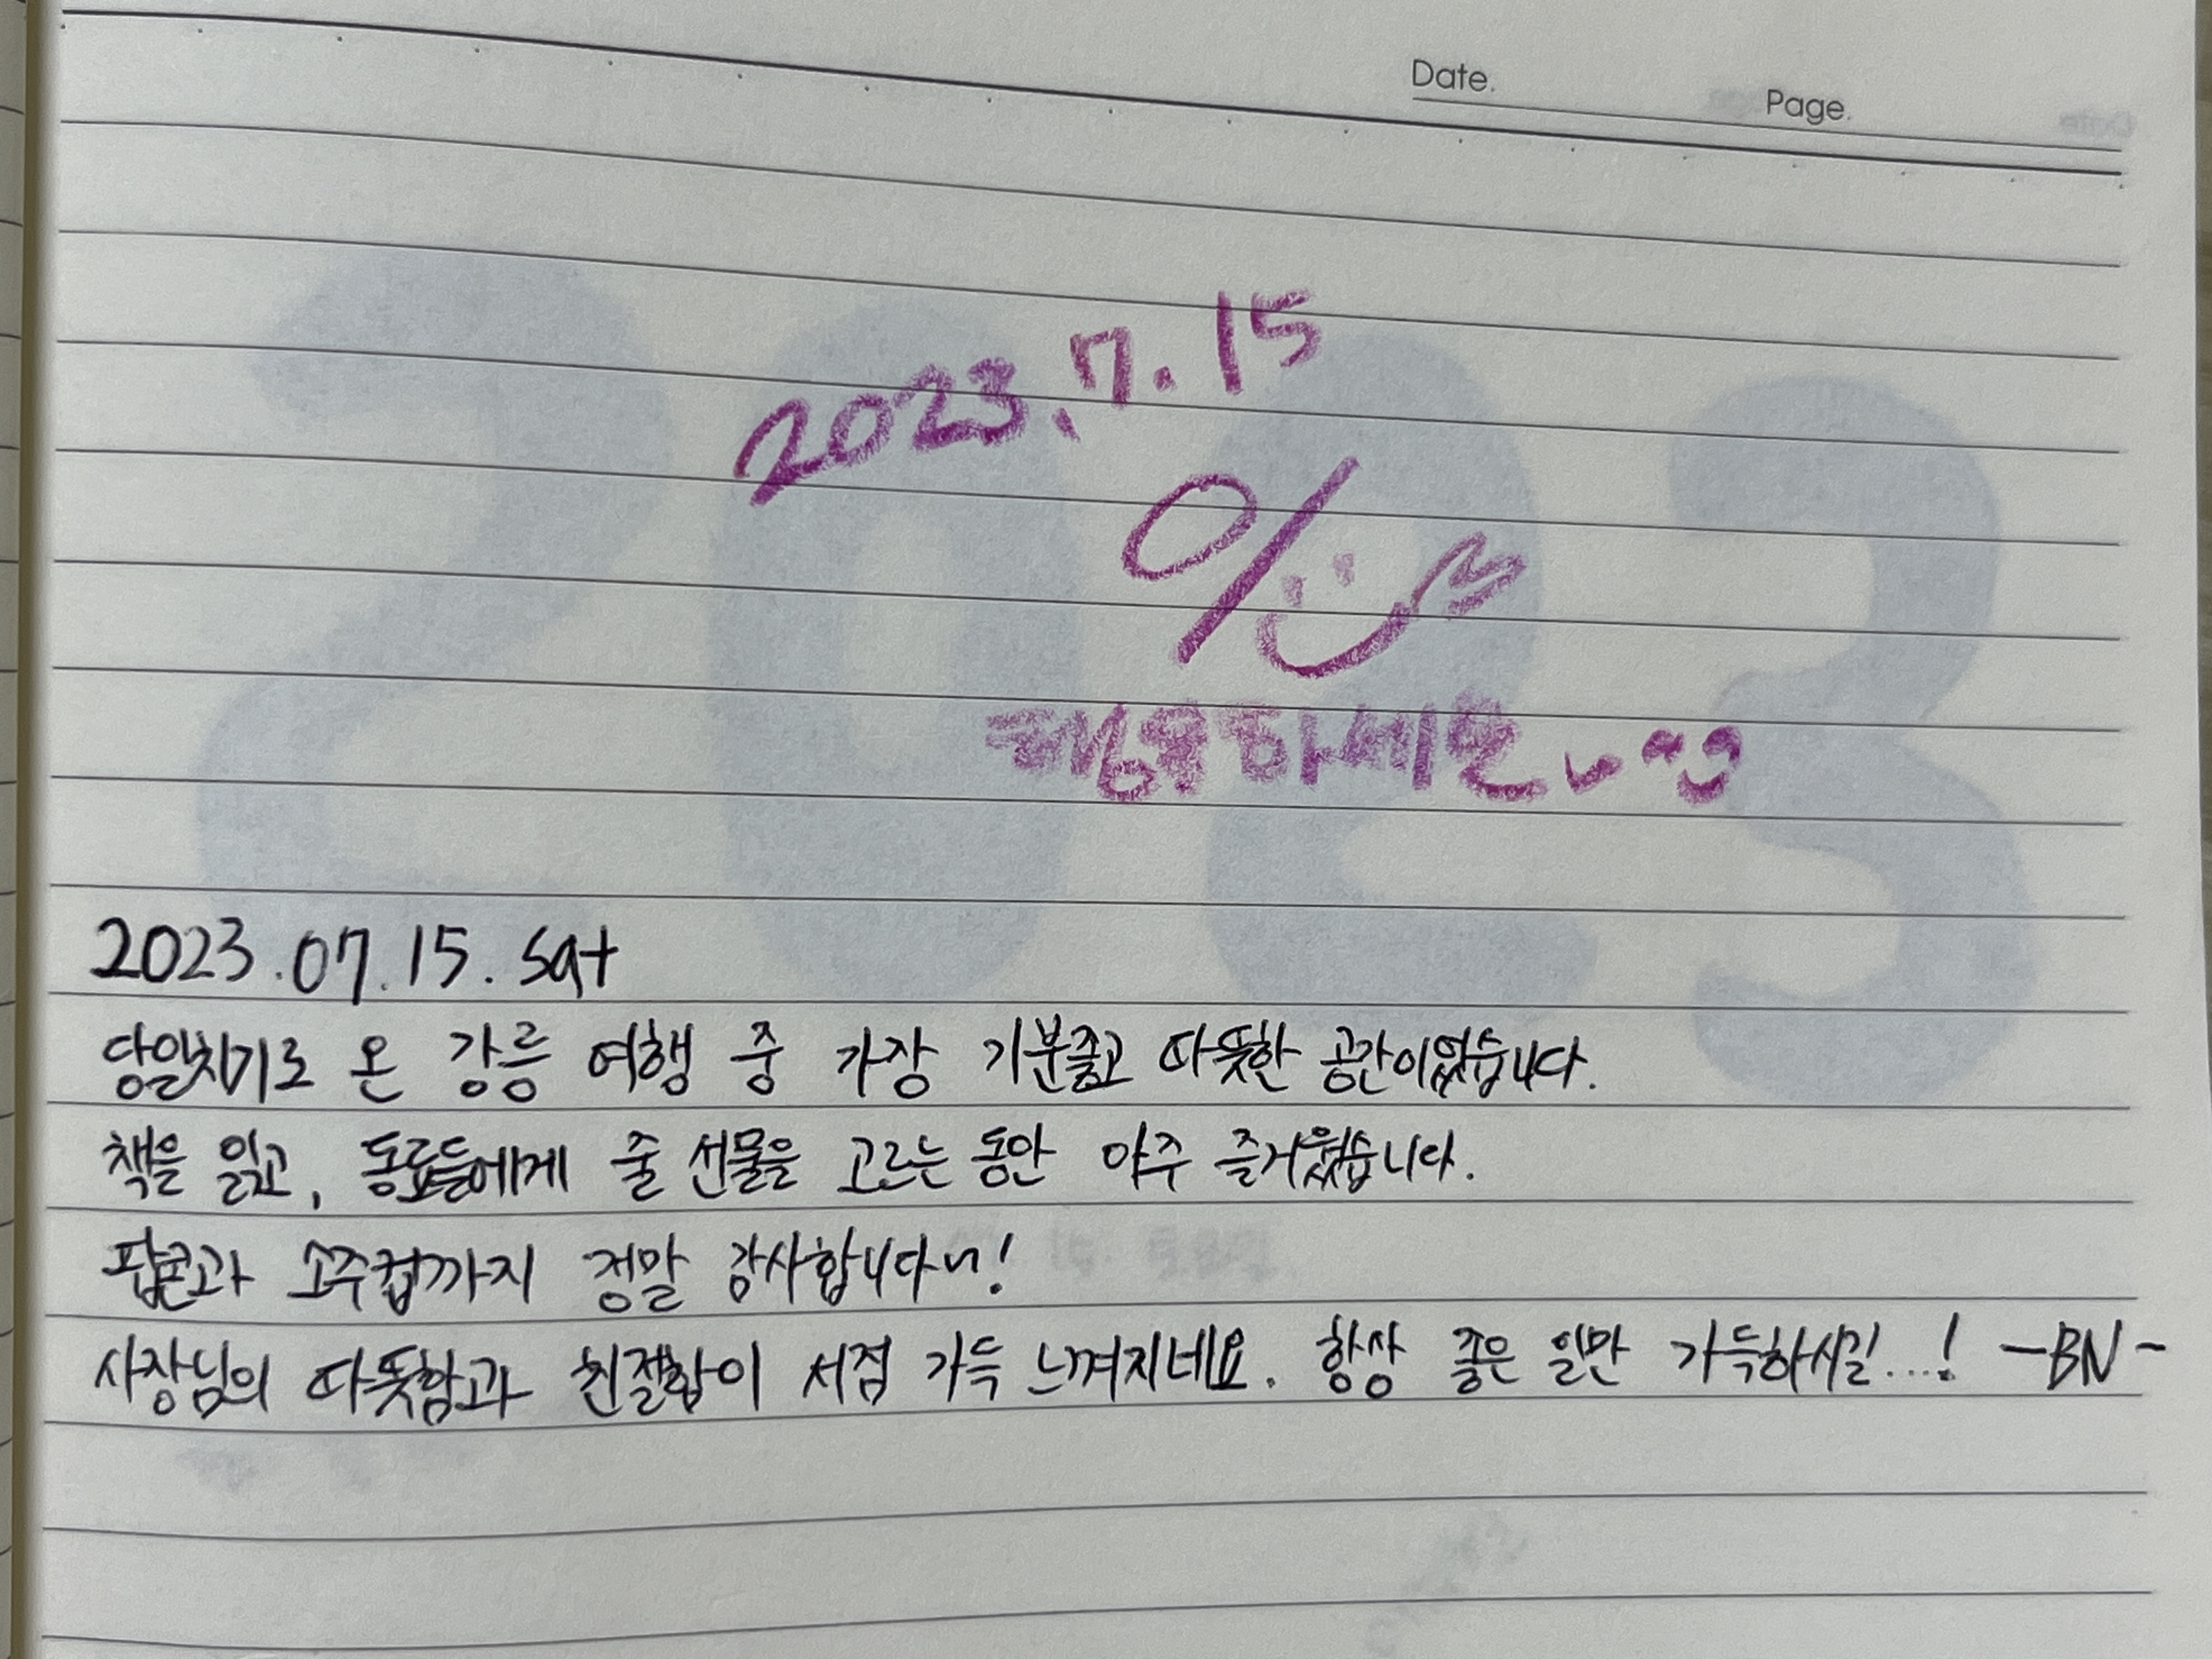 Date.
Page.
2023.7.15
행복하세요~^^
2023.07.15. Sat
당일치기로 온 강릉 여행 중 가장 기분좋고 따뜻한 공간이었습니다.
책을 읽고, 동료들에게 줄 선물을 고르는 동안 아주 즐거웠습니다.
팝콘과 소주컵까지 정말 감사합니다~!
사장님의 따뜻함과 친절함이 서점 가득 느껴지네요. 항상 좋은 일만 가득하시길...! -BN-